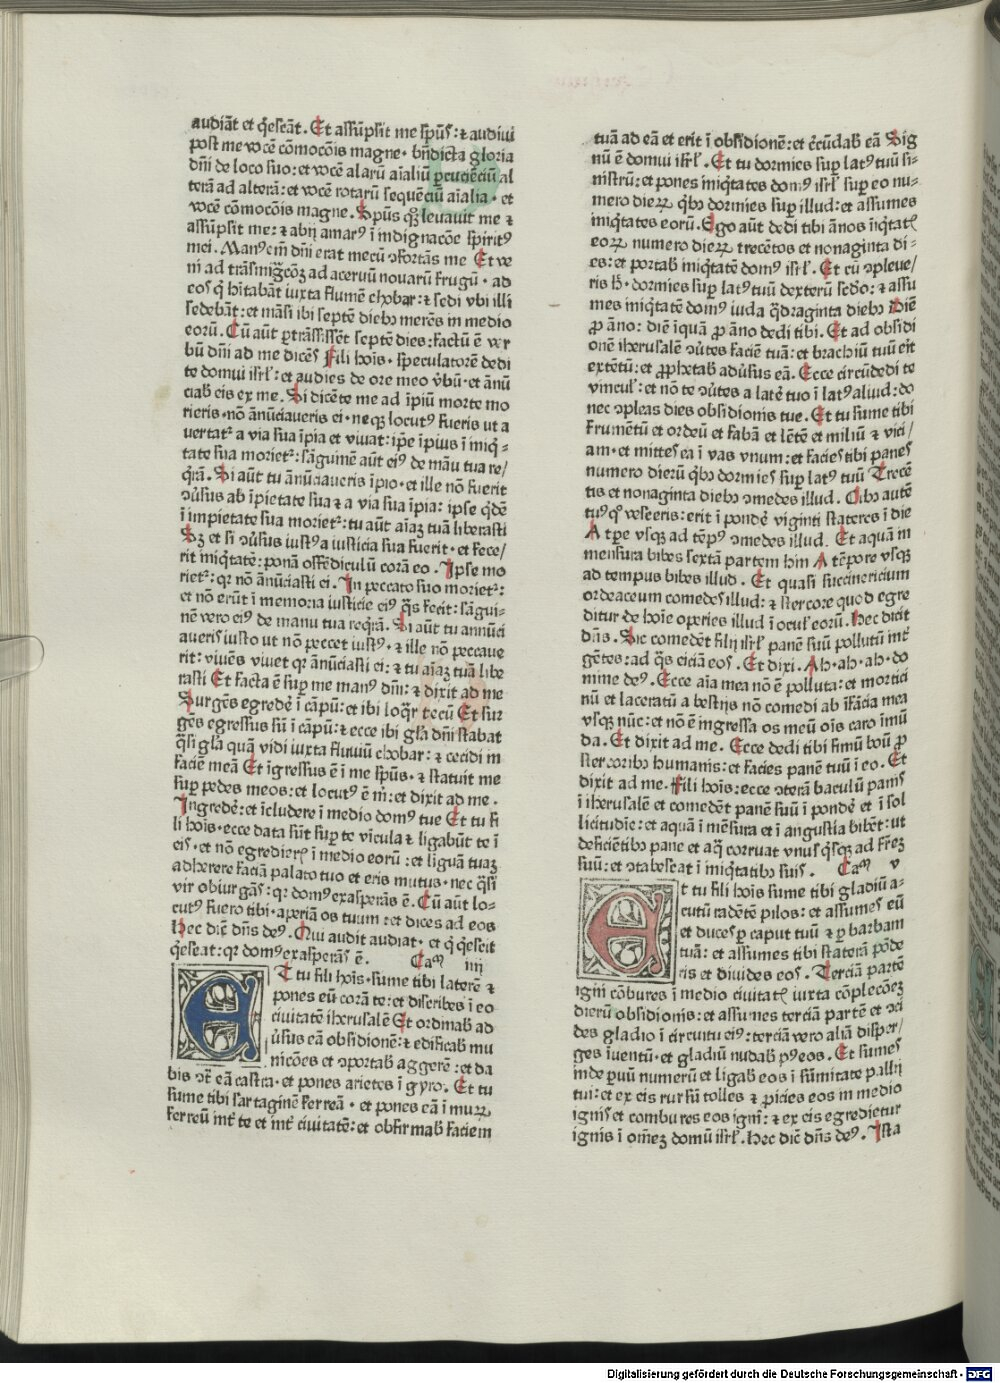 audiāt et q̄ſcāt. Et aſſūpſit me ſpūſ: ⁊ audiui
poſt me vocē cōmocōis magne. bn̄dicta gloria
dn̄i de loco ſuo: et vocē alarū aīaliū ꝑcuciēciū al
terā ad alterā: et vocē rotarū ſequēciū aīalia. et
vocē cōmocōis magne. Spūs qꝫ leuauit me ⁊
aſſūpſit me: ⁊ abij amarꝰ ī indignacōe ſpiritꝰ
mei. Manꝰ em̄ dn̄i erat mecū ↄfortās me Et ve
ni ad trāſmigͣcōꝫ ad aceruū nouarū frugū. ad
eos q̇ hītabāt iuxta flumē chobar: ⁊ ſedi vbi illi
ſedebāt: et māſi ibi ſeptē diebꝫ merēs in medio
eorū. Cū aūt ꝑtrāſiſſēt ſeptē dies: factū ē ver
bū dn̄i ad me dicēſ Fili hoīs. ſpeculatorē dedi
te domui iſrl̄: et audies de ore meo v̄bū: et ānū
ciab̄ eis ex me. Si dicēte me ad īpiū morte mo
rieris. nō ānūciaueris ei. neqꝫ locutꝰ fueris ut a
uertatᷣ a via ſua īpia et viuat: ip̄e īpius ī miq̇⸗
tate ſua morietᷣ: ſāguinē aūt eiꝰ de māu tua re/
q̇rā. Si aūt tu ānūciaueris īpio. et ille nō fuerit
ↄūſus ab īpietate ſua ⁊ a via ſua īpia: ipſe q̇dē
ī impietate ſua morietᷣ: tu aūt aīaꝫ tuā liberaſti
Sꝫ et ſi ↄūſus iuſtꝰ a iuſticia ſua fuerit. et fece/
rit miq̇tatē: ponā offēdiculū corā eo. Ipſe mo
rietᷣ: qꝛ nō ānūciaſti ei. In peccato ſuo morietᷣ:
et nō erūt ī memoria iuſticie eiꝰ q̄s fecit: ſāgui⸗
nē vero eiꝰ de manu tua req̇rā. Si aūt tu annūci
aueris iuſto ut nō peccet iuſtꝰ. ⁊ ille nō peccaue
rit: viuēs viuet qꝛ ānūciaſti ei: ⁊ tu aīaꝫ tuā libe
raſti Et facta ē ſuꝑ me manꝰ dn̄i: ⁊ dixit ad me
Surgēs egredē ī cāpū: et ibi loq̇r tecū Et ſur
gēs egreſſus ſū ī cāpū: ⁊ ecce ibi gl̄a dn̄i ſtabat
q̄ſi gl̄a quā vidi iuxta fluuiū chobar: ⁊ cecidi in
faciē meā Et īgreſſus ē ī me ſpūs. ⁊ ſtatuit me
ſuꝑ pedes meos: et locutꝰ ē m̄: et dixit ad me.
Ingredē: et īcludere ī medio domꝰ tue Et tu fi
li hoīs. ecce data ſūt ſuꝑ te vīcula ⁊ ligabūt te ī
eiſ. et nō egredierſ ī medio eorū: et liguā tuaꝫ
adherere faciā palato tuo et eris mutus. nec q̄ſi
vir obiurgāſ: qꝛ domꝰ exaſperās ē. Cū aūt lo⸗
cutꝰ fuero tibi. aperiā os tuum ⁊ et dices ad eos
Hec dic̄ dn̄s deꝰ. Qui audit audiat. et q̇ q̇eſcit
q̇eſcat: qꝛ domꝰ exaſperāſ ē. Caᵐ iiij
ET tu fili hoīs. ſume tibi laterē ⁊
pones eū corā te: et diſcribes ī eo
ciuitatē iheruſalē Et ordinab̄ ad
ūſus eā obſidionē: ⁊ edificab̄ mu
nicōes et ↄportab̄ aggerē: et da
bis ↄͣt eā caſtra. et pones arietes ī gyro. Et tu
ſume tibi ſartaginē ferreā. et pones eā ī muꝝ
ferreū int̄ te et int̄ ciuitatē: et obfirmab̄ faciem
tuā ad eā et erit ī obſidionē: et c̄rcūdab̄ eā Sig
nū ē domui iſrl̄. Et tu dormies ſuꝑ latꝰ tuū ſi⸗
niſtrū: et pones miq̇tates domꝰ iſrl̄ ſuꝑ eo nu⸗
mero dieꝝ q̇bꝫ dormies ſuꝑ illud: et aſſumes
imiq̇tates eorū. Ego aūt dedi tibi ānos īiq̇tatꝭ
eoꝝ numero dieꝝ trecētos et nonaginta di⸗
es: et portab̄ miq̇tatē domꝰ iſrl̄. Et cū ↄpleue/
ris h̄. dormies ſuꝑ latꝰ tuū dexterū ſed̄o: ⁊ aſſu
mes miq̇tatē domꝰ iuda q̄draginta diebꝫ Diē
ꝓ āno: diē īquā ꝓ āno dedi tibi. Et ad obſidi
onē iheruſalē ↄūtes faciē tuā: et brachiū tuū erit
extētū: et ꝓphetab̄ adūſus eā. Ecce circūdedi te
vinculꝭ: et nō te ↄūtes a latē tuo ī latꝰ aliud: do
nec ↄpleas dies obſidionis tue. Et tu ſume tibi
frumētū et ordeū et fabā et lētē et miliū ⁊ vici/
am. et mittes ea ī vas vnum: et facieſ tibi paneſ
numero dierū q̇bꝫ dormieſ ſuꝑ latꝰ tuū Trecē
tis et nonaginta diebꝫ ↄmedes illud. Cibꝫ autē
tuꝰ qͦ veſceris: erit ī pondē viginti ſtateres ī die
A tꝑe vſqꝫ ad tēpꝰ ↄmedes illud. Et aquā in
menſura bibes ſextā partem hin A tēpore vſqꝫ
ad tempus bibes illud. Et quaſi ſuccinericium
ordeaceum comedeſ illud: ⁊ ſtercore quod egre
ditur de hoīe operies illud ī oculꝭ eorū. Hec dicit
dn̄s. Sic comedēt filij iſrl̄ panē ſuū pollutū int̄
gētes: ad q̄s eiciā eos. Et dixi. Ah. ah. ah. do
mine deꝰ. Ecce aīa mea nō ē polluta: et mortici
nū et laceratū a beſtijs nō comedi ab īfācia mea
vſqꝫ nūc: et nō ē ingreſſa os meū oīs caro īmū
da. Et dixit ad me. Ecce dedi tibi fimū boū ꝓ
ſtercoribꝫ humanis: et facies panē tuū ī eo. Et
dixit ad me. Fili hoīs: ecce ↄterā baculū panis
ī iheruſalē et comedēt panē ſuū ī pondē et ī ſol
licitudīe: et aquā ī mēſura et ī anguſtia bibēt: ut
deficiētibꝫ pane et aq̄ corruat vnuſ q̇ſqꝫ ad fr̄eꝫ
ſuū: et ↄtabeſcāt ī miq̇tatibꝫ ſuiſ. Caᵐ v
ET tu fili hoīs ſume tibi gladiū a⸗
cutū radētē pilos: et aſſumeſ eū
et duces ꝑ caput tuū ⁊ ꝑ barbam
tuā: et aſſumies tibi ſtaterā pōde
ris et diuides eoſ. Terciā partē
igni cōbures ī medio ciuitatꝭ iuxta cōplecōeꝫ
dierū obſidionis: et aſſumes terciā partē et ↄci
des gladio ī circuitu eiꝰ: terciā vero aliā diſper/
ges ī uentū. et gladiū nudab̄ pꝰ eos. Et ſumeſ
inde ꝑuū numerū et ligab̄ eos ī ſūmitate pallij
tui: et ex eis rurſū tolles ⁊ ꝓicies eos in medio
igniſ et combures eos igni: ⁊ ex eis egredietur
ignis ī om̄eꝫ domū iſrl̄. Hec dic̄ dn̄s deꝰ. Iſta
Digitalisierung gefördert durch die Deutsche Forschungsgemeinschaft - DFG